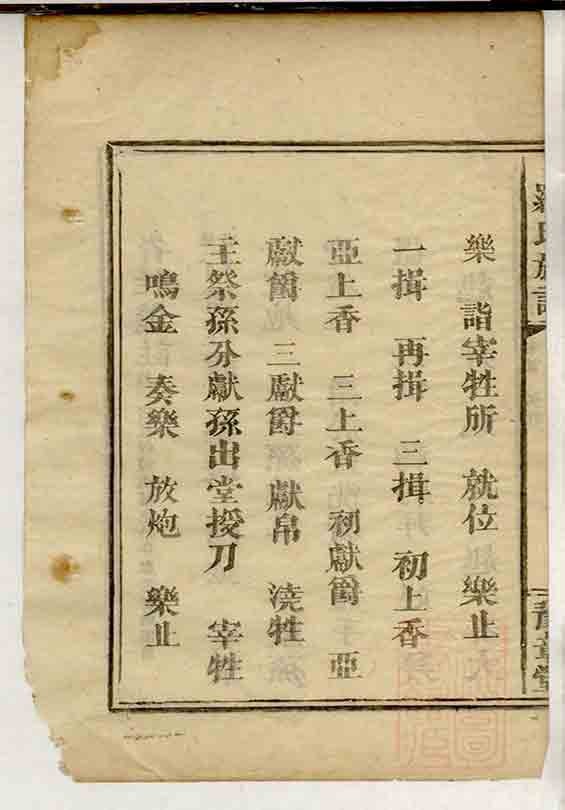 羅氏族譜
豫章堂
樂 詣宰牲所 就位 樂止
一揖 再揖 三揖 初上香
亞上香 三上香 初獻爵 亞
獻爵 三獻爵 獻帛 澆牲
主祭孫分獻孫出堂授刀 宰牲
鳴金 奏樂 放炮 樂止